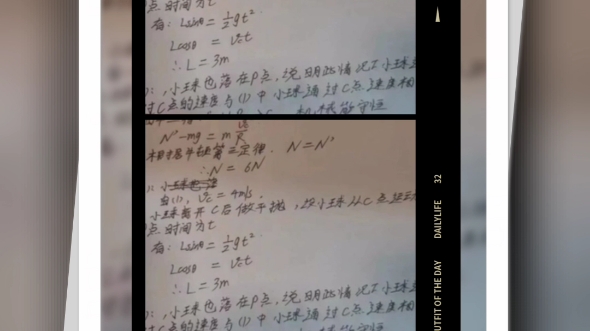 点 时间为t
有: Lsinθ = ½gt².
Lcosθ = v꜀t
∴ L = 3m
, 小球也落在P点, 说明此情况下小球
过C点的速度与(1)中小球通过C点速度相
机械能守恒
N'-mg = m
相据牛顿第三定律. N=N'
∴N = 6N
由(1), v꜀ = 4m/s,
小球离开C后做平抛, 从C点
点 时间为t
有: Lsinθ = ½gt².
Lcosθ = v꜀t
∴ L = 3m
, 小球也落在P点, 说明此情况下小球
过C点的速度与(1)中小球通过C点速度相
OUTFIT OF THE DAY DAILYLIFE 32